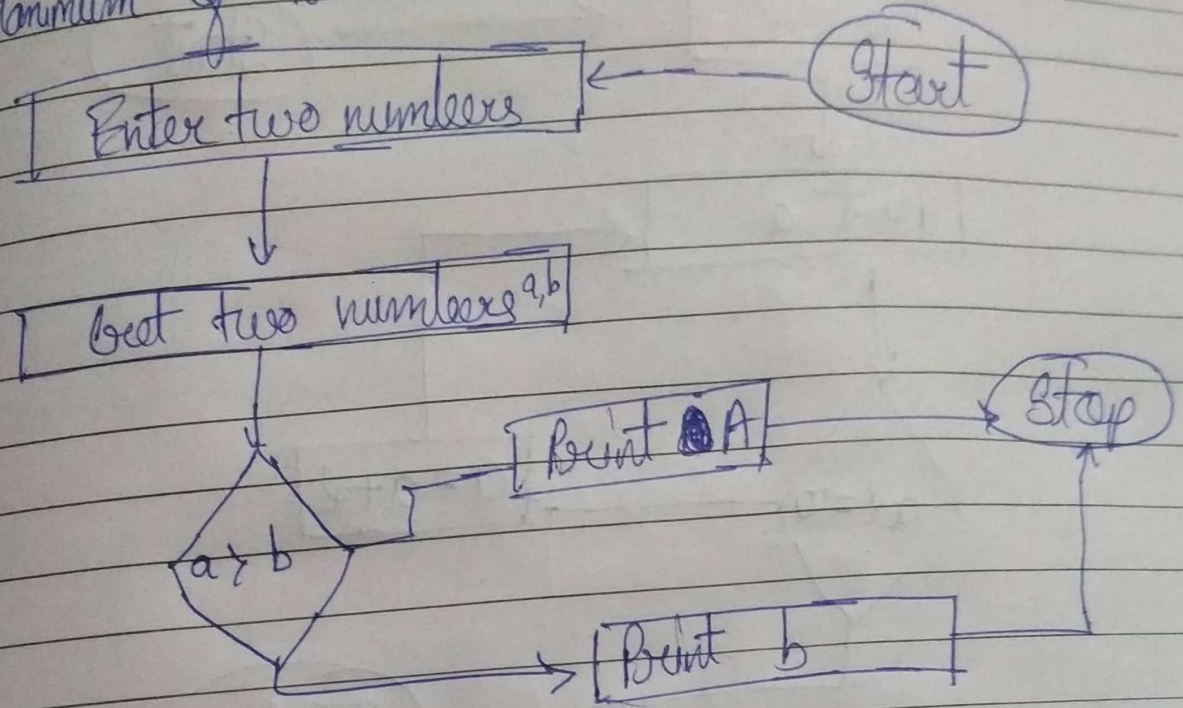 Start
Enter two numbers
Get two numbers a,b
Print A
Stop
a > b
Print b